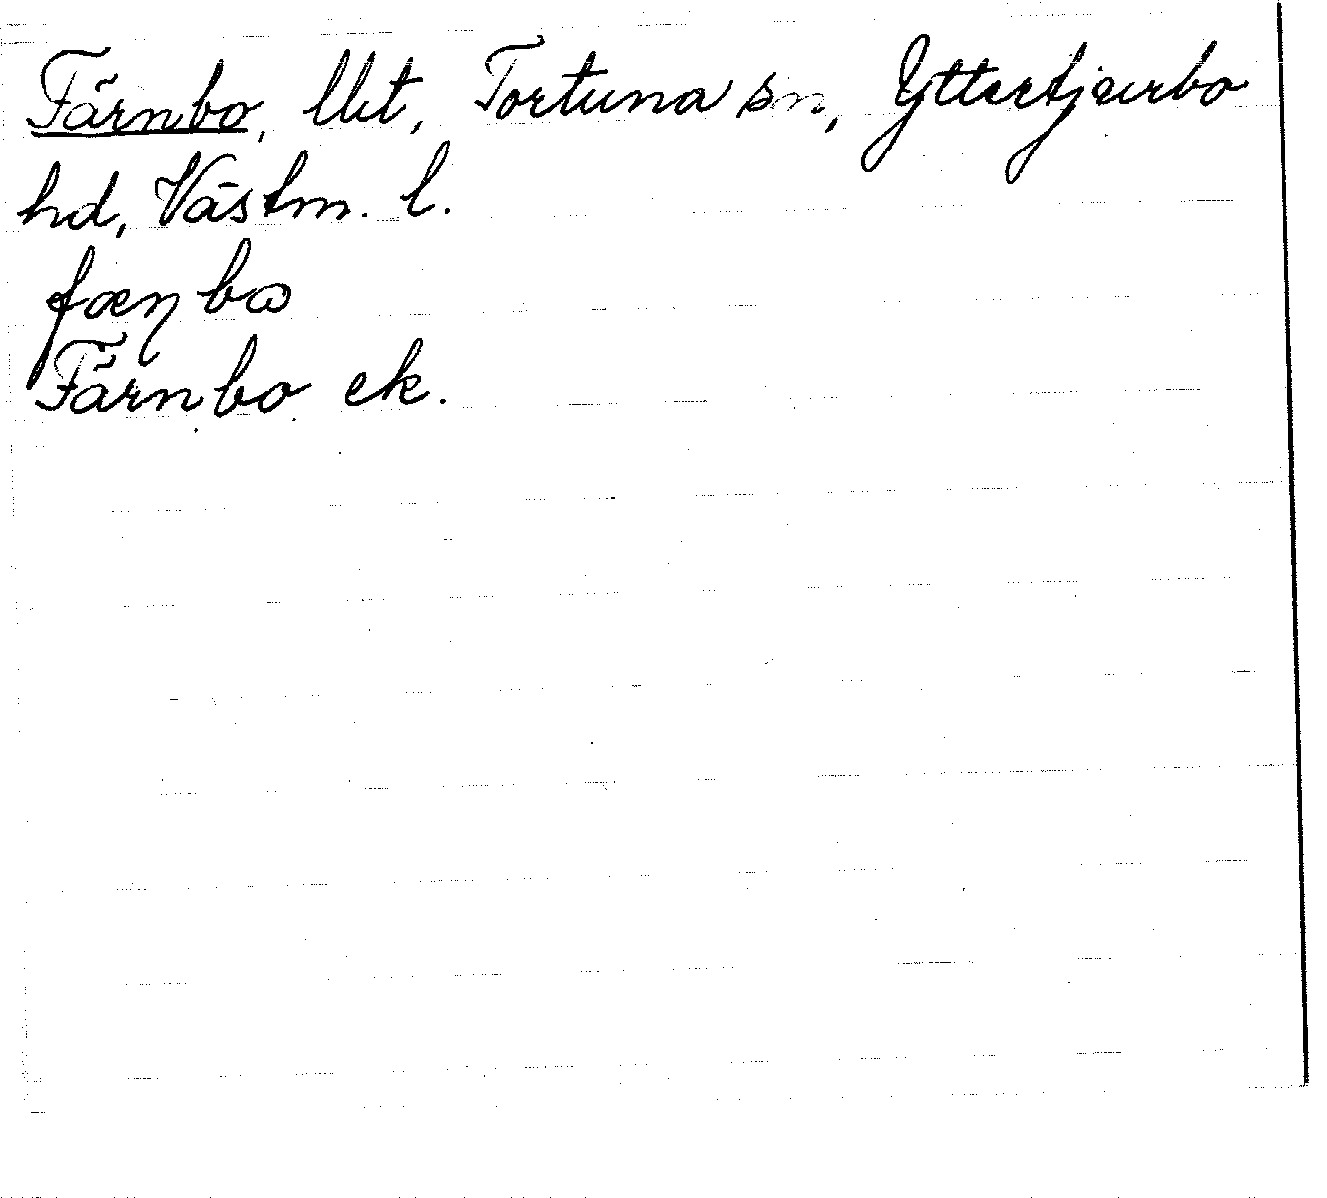 Färnbo, Tortuna sn, Yttertjurbo
hd, Västm. l.
Färnbo ek.